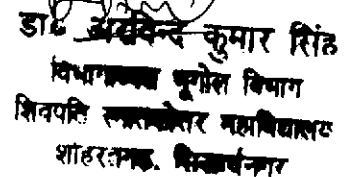 डा० अरविन्द कुमार सिंह
विभागाध्यक्ष भूगोल विभाग
शिवपति स्नातकोत्तर महाविद्यालय
शोहरतगढ़, सिद्धार्थनगर